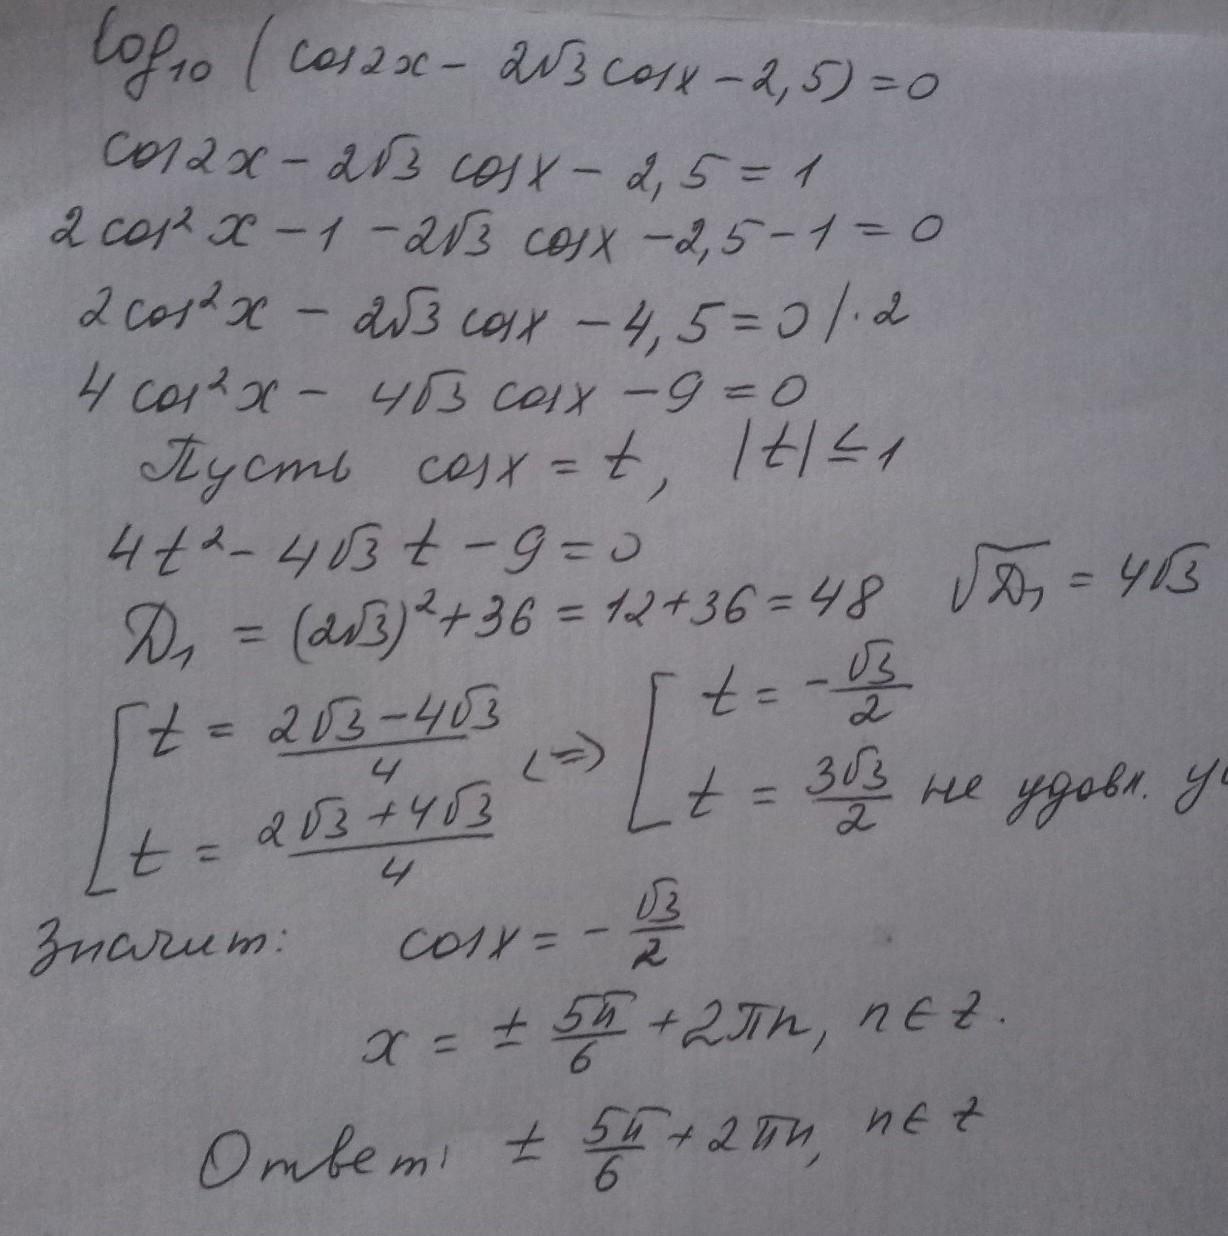 log₁₀ (cos2x − 2√3 cosx − 2,5) = 0
cos2x − 2√3 cosx − 2,5 = 1
2cos²x − 1 − 2√3 cosx − 2,5 − 1 = 0
2cos²x − 2√3 cosx − 4,5 = 0 /·2
4cos²x − 4√3 cosx − 9 = 0
Пусть cosx = t, |t| ≤ 1
4t² − 4√3 t − 9 = 0
D₁ = (2√3)² + 36 = 12 + 36 = 48 √D₁ = 4√3
[ t = (2√3 − 4√3)/4 <=> [ t = −√3/2
t = (2√3 + 4√3)/4 t = 3√3/2 не удовл.
Значит: cosx = −√3/2
x = ± 5π/6 + 2πn, n ∈ z.
Ответ: ± 5π/6 + 2πn, n ∈ z